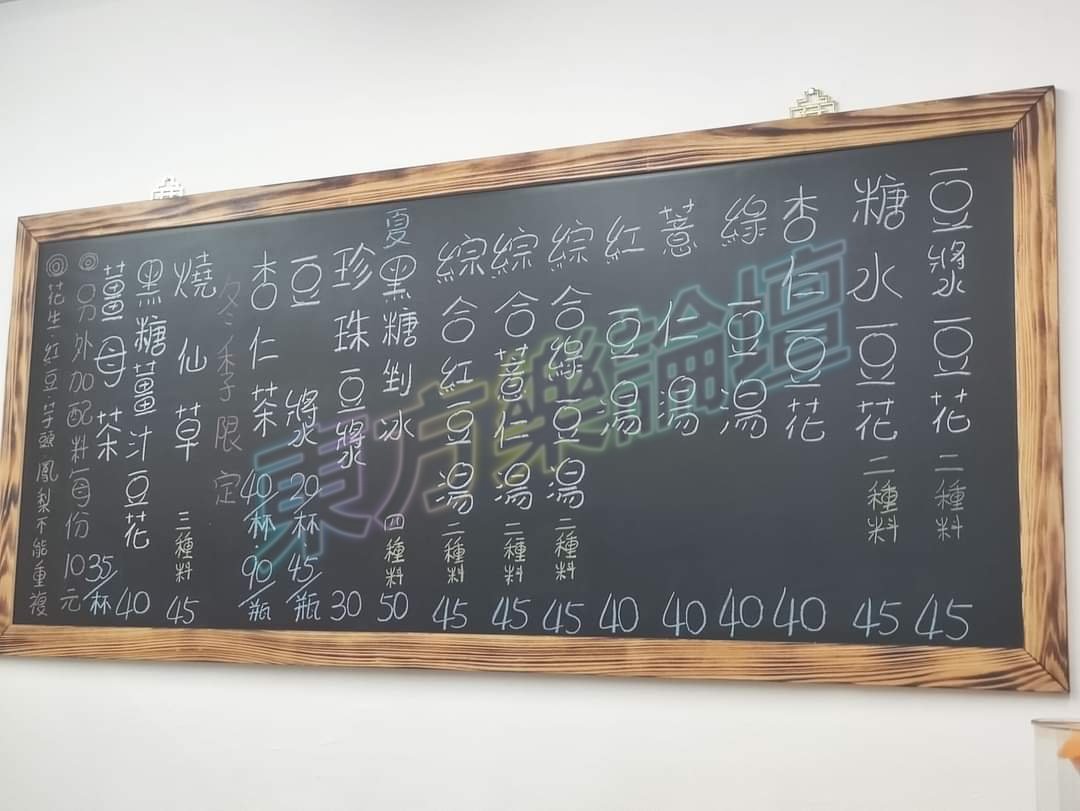 豆漿豆花 二種料 45
糖水豆花 二種料 45
杏仁豆花 40
綠豆湯 40
薏仁湯 40
紅豆湯 40
綜合綠豆湯 二種料 45
綜合薏仁湯 二種料 45
綜合紅豆湯 二種料 45
夏 黑糖剉冰 四種料 50
珍珠豆漿 30
豆漿 20/杯 45/瓶
杏仁茶 40/杯 90/瓶
冬季限定
燒仙草 三種料 45
黑糖薑汁豆花 40
薑母茶 35/杯
◎另外加配料每份10元
◎花生、紅豆、芋頭、鳳梨不能重複
東方樂論壇